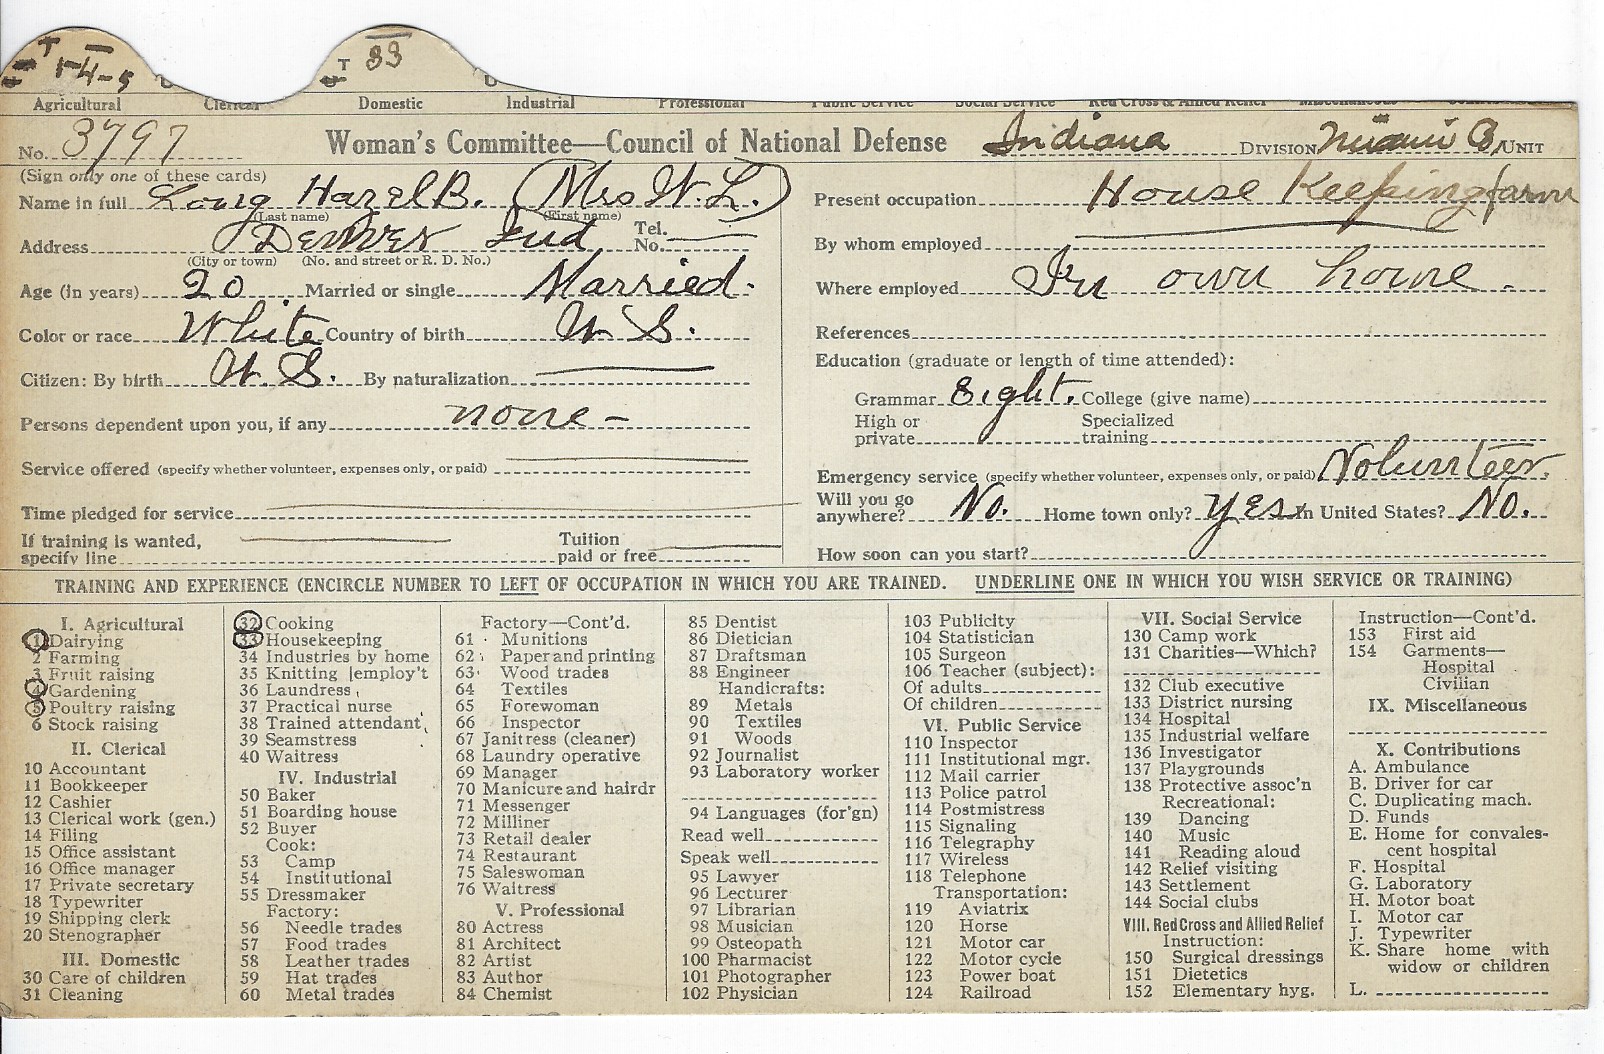 T 1-4-5 T 33
Agricultural Clerical Domestic Industrial Professional Public Service Social Service Red Cross & Allied Relief Miscellaneous
No. 3797 Woman's Committee—Council of National Defense Indiana DIVISION Miami Co, UNIT
(Sign only one of these cards)
Name in full Long Hazel B. (Mrs W. L.)
(Last name) (First name)
Address Denver Ind, Tel. No.
(City or town) (No. and street or R. D. No.)
Age (in years) 20 Married or single Married.
Color or race White Country of birth U. S.
Citizen: By birth U. S. By naturalization
Persons dependent upon you, if any none -
Service offered (specify whether volunteer, expenses only, or paid)
Time pledged for service
If training is wanted, specify line Tuition paid or free
Present occupation House Keeping farm
By whom employed
Where employed In own home.
References
Education (graduate or length of time attended):
Grammar Eight. College (give name)
High or private Specialized training
Emergency service (specify whether volunteer, expenses only, or paid) Volunteer.
Will you go anywhere? No. Home town only? Yes In United States? No.
How soon can you start?
TRAINING AND EXPERIENCE (ENCIRCLE NUMBER TO LEFT OF OCCUPATION IN WHICH YOU ARE TRAINED. UNDERLINE ONE IN WHICH YOU WISH SERVICE OR TRAINING)
I. Agricultural
1 Dairying
2 Farming
3 Fruit raising
4 Gardening
5 Poultry raising
6 Stock raising
II. Clerical
10 Accountant
11 Bookkeeper
12 Cashier
13 Clerical work (gen.)
14 Filing
15 Office assistant
16 Office manager
17 Private secretary
18 Typewriter
19 Shipping clerk
20 Stenographer
III. Domestic
30 Care of children
31 Cleaning
32 Cooking
33 Housekeeping
34 Industries by home
35 Knitting [employ't
36 Laundress
37 Practical nurse
38 Trained attendant
39 Seamstress
40 Waitress
IV. Industrial
50 Baker
51 Boarding house
52 Buyer
Cook:
53 Camp
54 Institutional
55 Dressmaker
Factory:
56 Needle trades
57 Food trades
58 Leather trades
59 Hat trades
60 Metal trades
Factory—Cont'd.
61 Munitions
62 Paper and printing
63 Wood trades
64 Textiles
65 Forewoman
66 Inspector
67 Janitress (cleaner)
68 Laundry operative
69 Manager
70 Manicure and hairdr
71 Messenger
72 Milliner
73 Retail dealer
74 Restaurant
75 Saleswoman
76 Waitress
V. Professional
80 Actress
81 Architect
82 Artist
83 Author
84 Chemist
85 Dentist
86 Dietician
87 Draftsman
88 Engineer
Handicrafts:
89 Metals
90 Textiles
91 Woods
92 Journalist
93 Laboratory worker
94 Languages (for'gn)
Read well
Speak well
95 Lawyer
96 Lecturer
97 Librarian
98 Musician
99 Osteopath
100 Pharmacist
101 Photographer
102 Physician
103 Publicity
104 Statistician
105 Surgeon
106 Teacher (subject):
Of adults
Of children
VI. Public Service
110 Inspector
111 Institutional mgr.
112 Mail carrier
113 Police patrol
114 Postmistress
115 Signaling
116 Telegraphy
117 Wireless
118 Telephone
Transportation:
119 Aviatrix
120 Horse
121 Motor car
122 Motor cycle
123 Power boat
124 Railroad
VII. Social Service
130 Camp work
131 Charities—Which?
132 Club executive
133 District nursing
134 Hospital
135 Industrial welfare
136 Investigator
137 Playgrounds
138 Protective assoc'n
Recreational:
139 Dancing
140 Music
141 Reading aloud
142 Relief visiting
143 Settlement
144 Social clubs
VIII. Red Cross and Allied Relief
Instruction:
150 Surgical dressings
151 Dietetics
152 Elementary hyg.
Instruction—Cont'd.
153 First aid
154 Garments—
Hospital
Civilian
IX. Miscellaneous
X. Contributions
A. Ambulance
B. Driver for car
C. Duplicating mach.
D. Funds
E. Home for convales-
cent hospital
F. Hospital
G. Laboratory
H. Motor boat
I. Motor car
J. Typewriter
K. Share home with
widow or children
L.